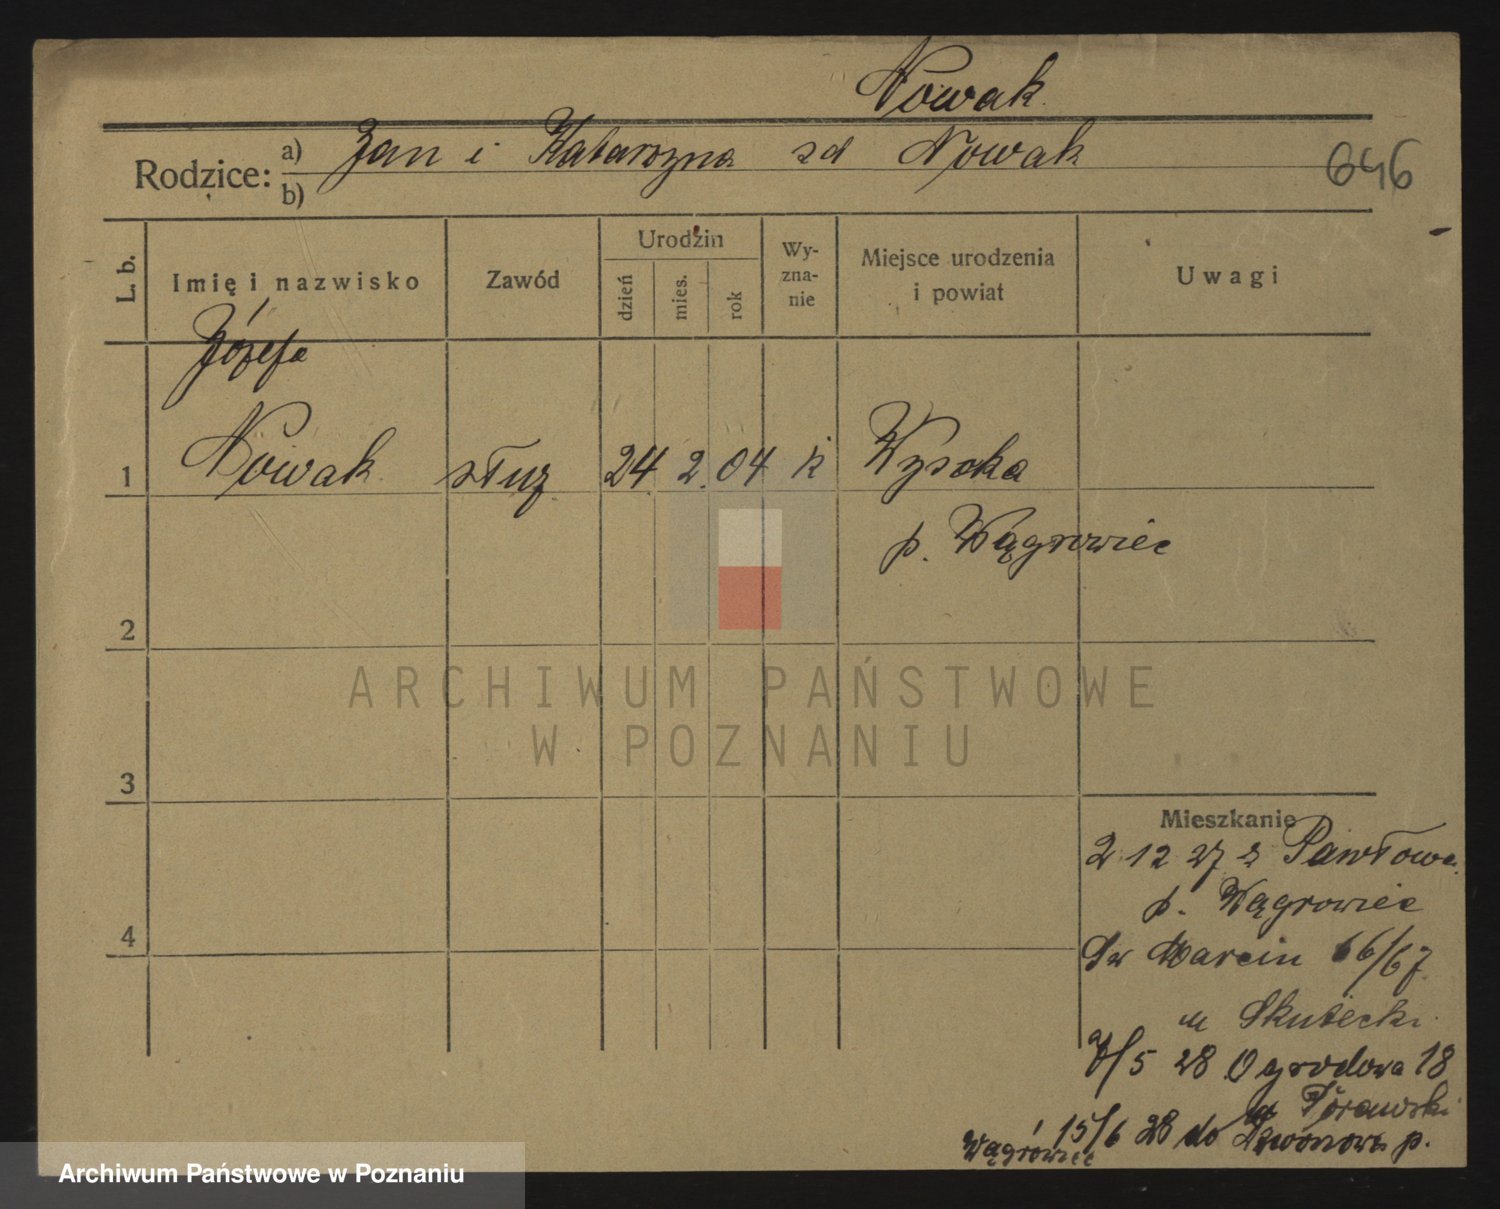 Nowak.
Rodzice: a) Jan i Katarzyna zd Nowak
b)
646
L. b.
Imię i nazwisko
Zawód
Urodzin
dzień
mies.
rok
Wy-
zna-
nie
Miejsce urodzenia
i powiat
Uwagi
Józefa
1 Nowak służ. 24 2. 04 k Wysoka
p. Wągrowiec
2
3
4
Mieszkanie
2 12 27 z Pawłowa.
p. Wągrowiec
Św Marcin 66/67
u Skutecki.
7/5 28 Ogrodowa 18
u
15/6 28 do p.
Wągrowiec
ARCHIWUM PAŃSTWOWE
W POZNANIU
Archiwum Państwowe w Poznaniu